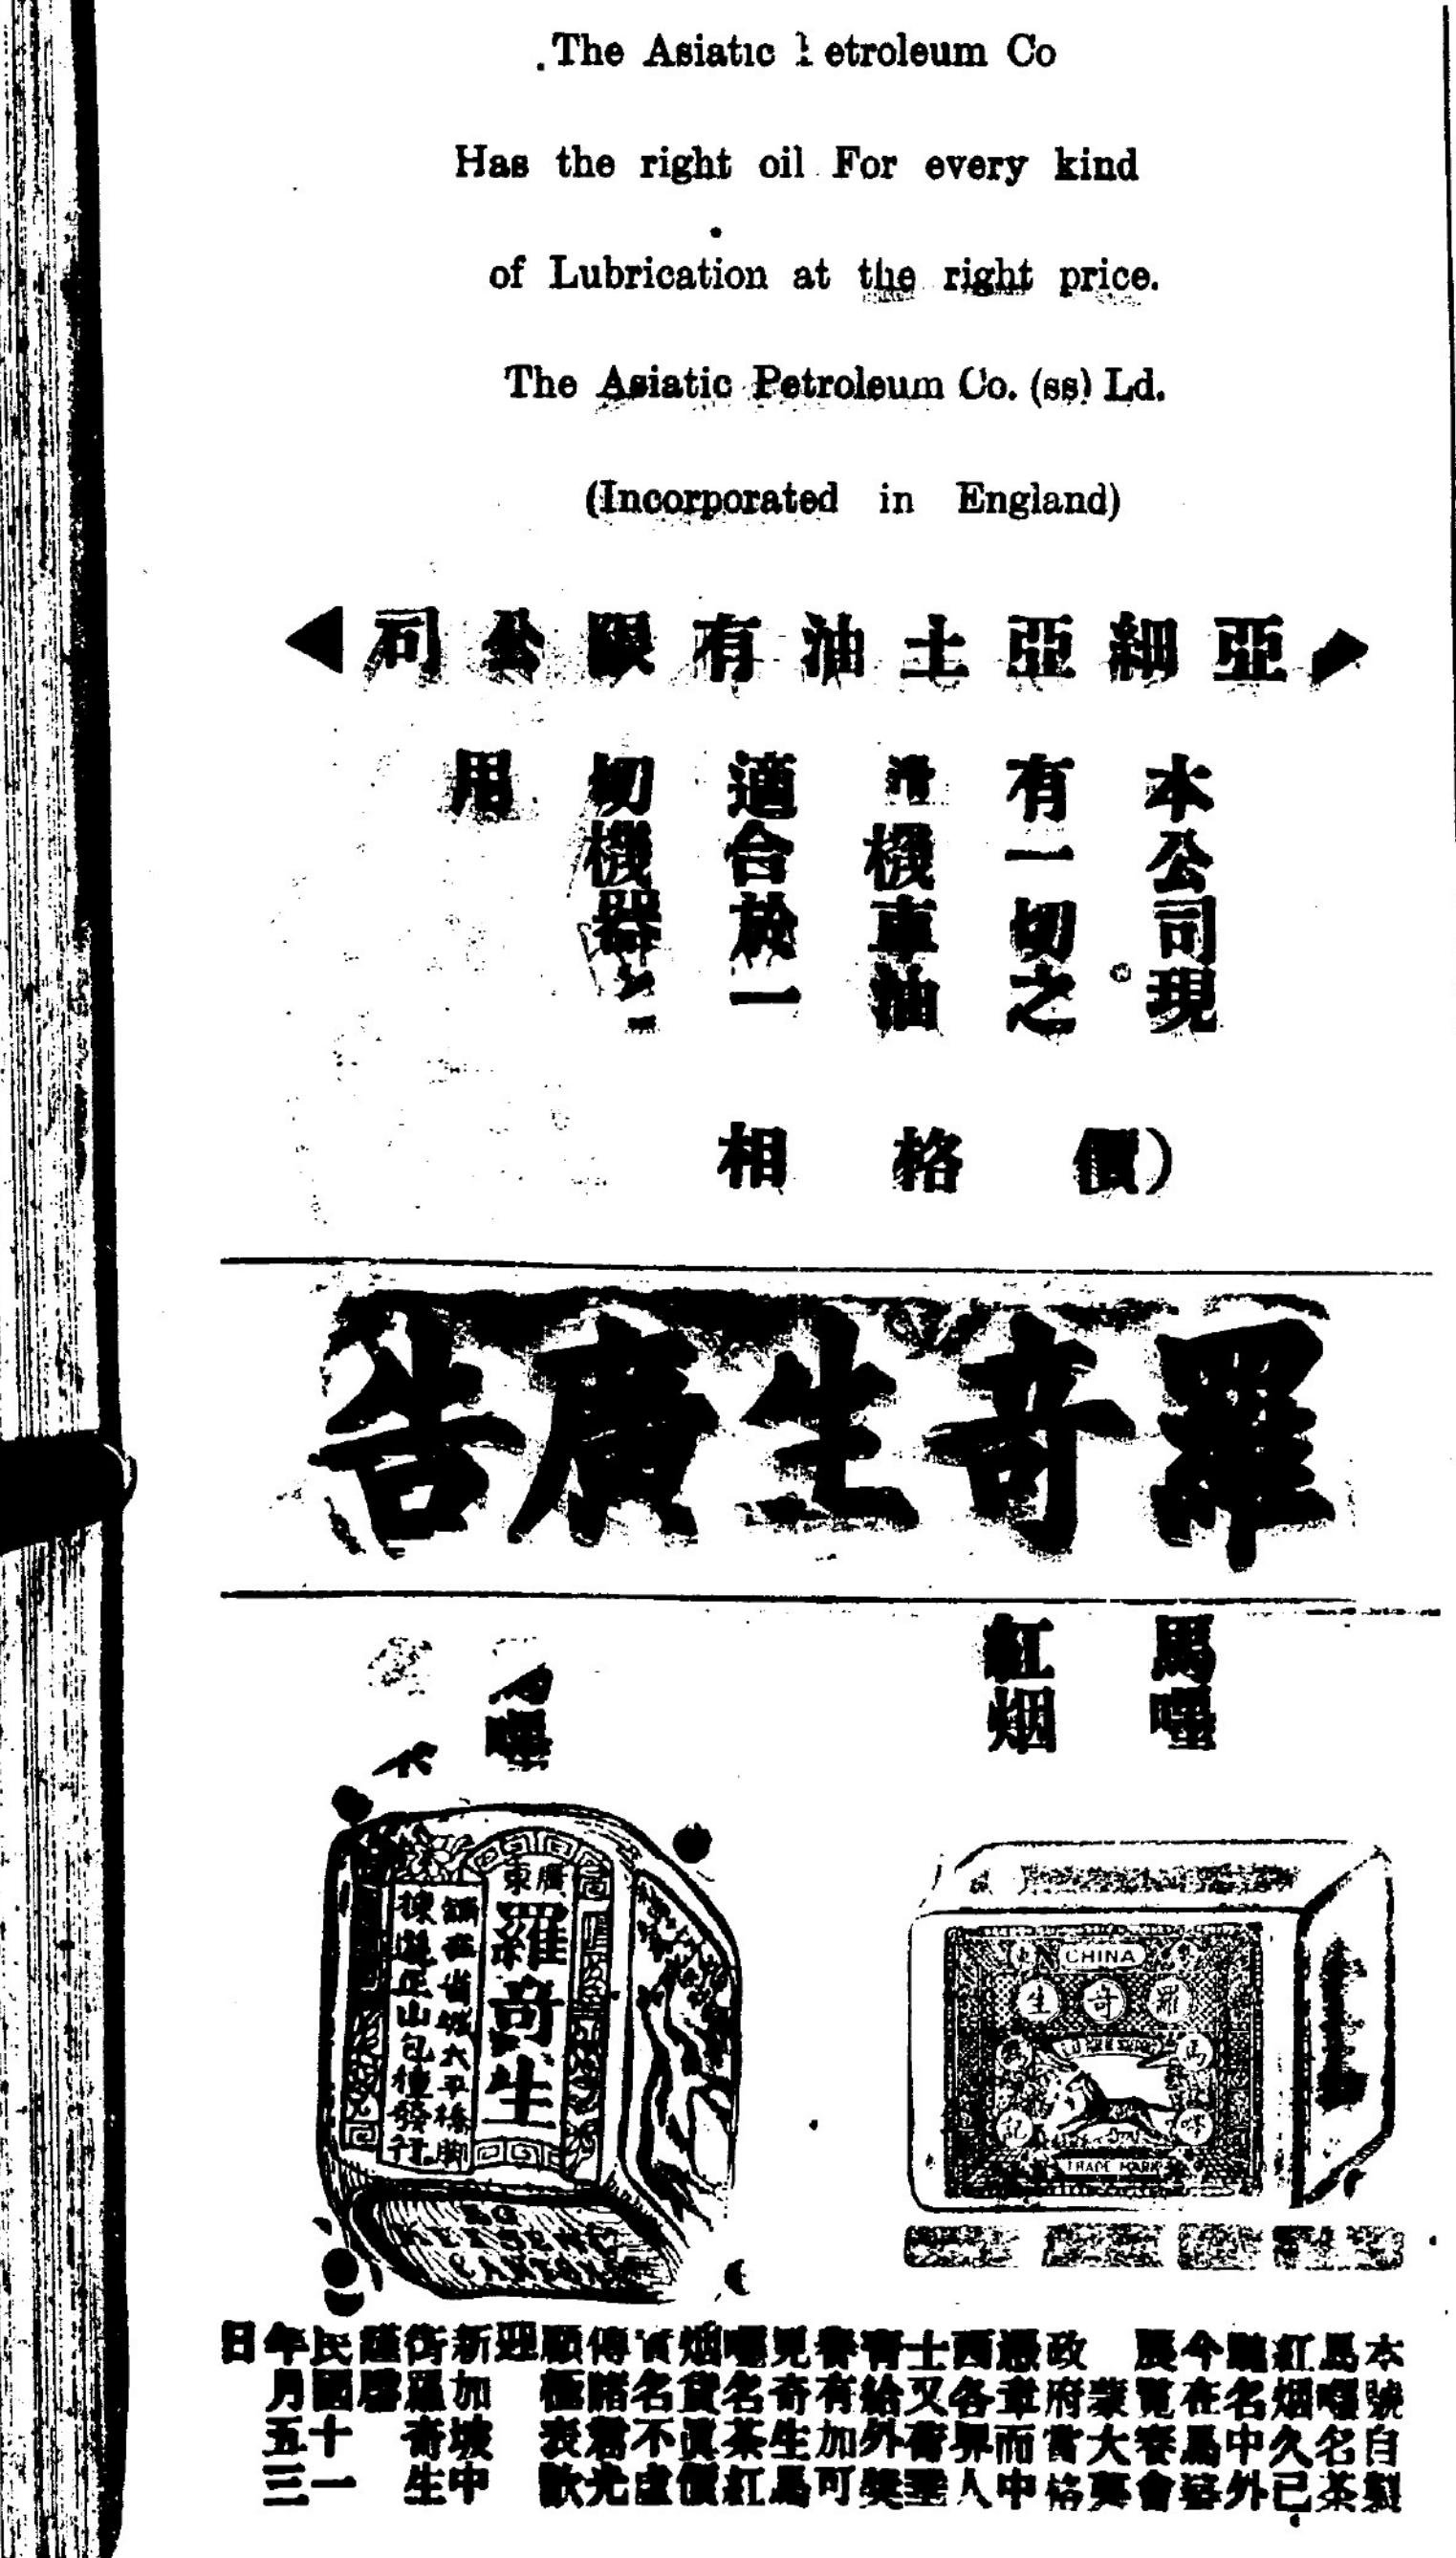 The Asiatic etroleum Co
Has the right oil For every kind
of Lubrication at the right price.
The Asiatic Petroleum Co. (ss) Ld.
(Incorporated in England)
亞細亞土油有限公司
本公司現
有一切之
滑機車油
適合於一
切機器之
用
價格相
羅奇生廣告
馬嘜
紅烟
嘜
廣東
羅奇生
舖在省城太平橋脚
揀選正山包種發行
CANTON
CHINA
羅奇生
TRADE MARK
本號自製
馬嘜名茶
紅烟久已
馳名中外
今在馬
展覽賽會
蒙大英
政府當
憑章而中
西各界人
士又
給外獎
有加可
見奇生馬
嘜名茶紅
烟貨真價
實名不虛
傳諸君光
顧極表歡
迎
新加坡中
街羅奇生
謹啓
民國十一
年月五三
日